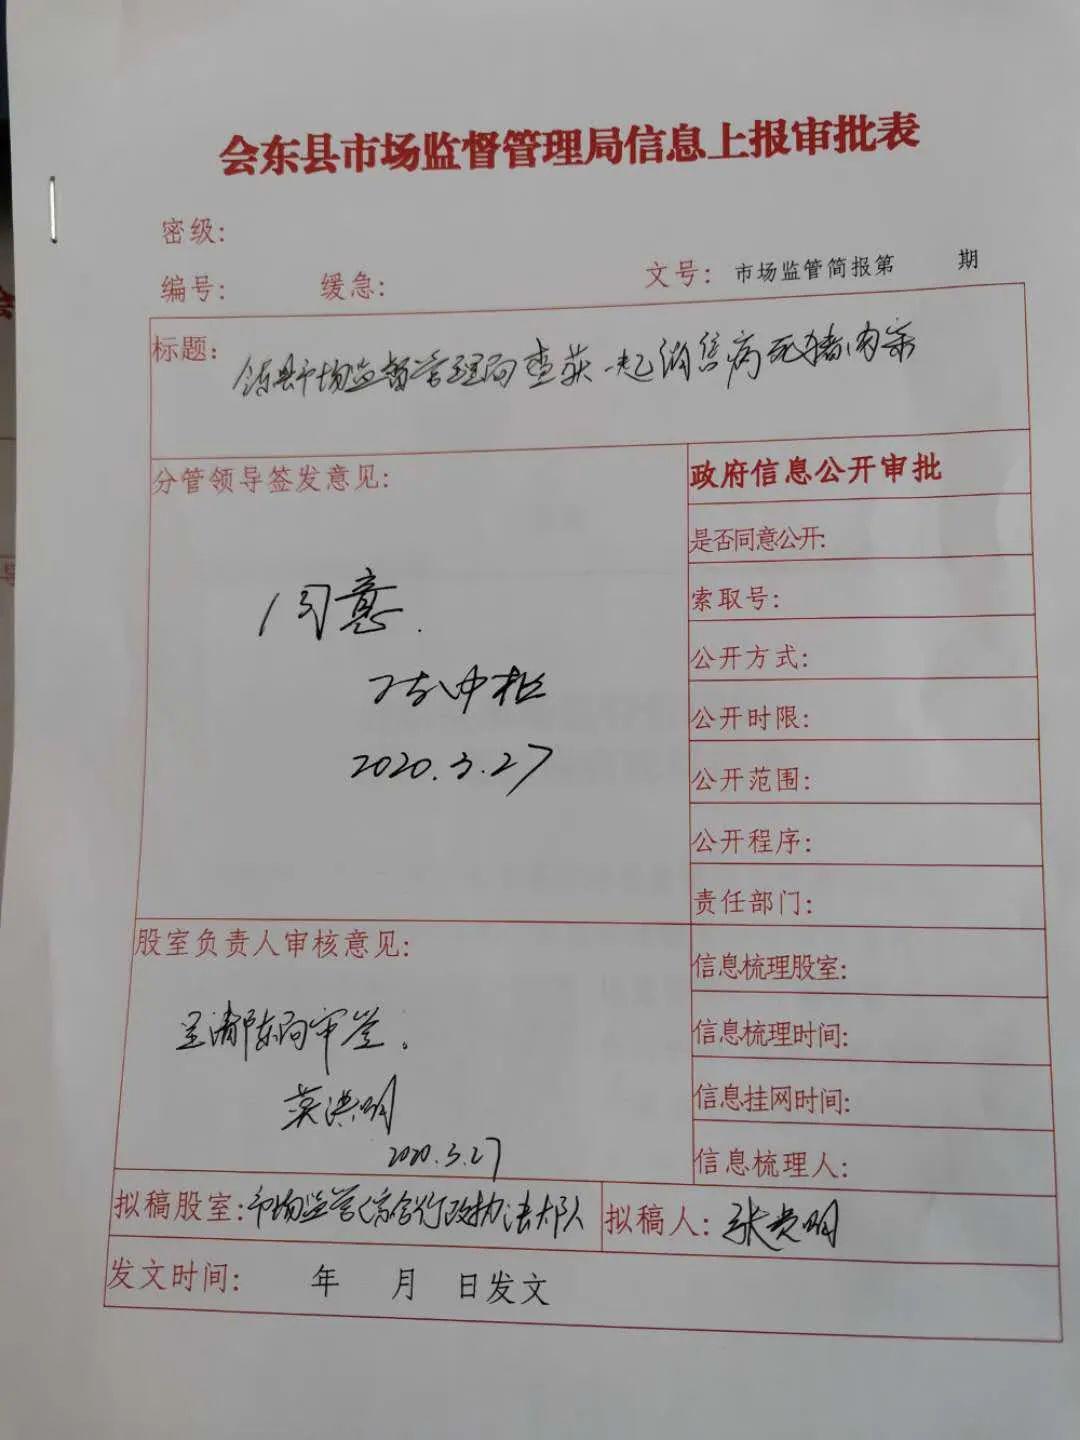 会东县市场监督管理局信息上报审批表
密级:
编号: 缓急: 文号: 市场监管简报第 期
标题:
会东县市场监督管理局查获一起销售病死猪肉案
分管领导签发意见:
同意.
2020.3.27
政府信息公开审批
是否同意公开:
索取号:
公开方式:
公开时限:
公开范围:
公开程序:
责任部门:
股室负责人审核意见:
呈请陈局审签。
2020.3.27
信息梳理股室:
信息梳理时间:
信息挂网时间:
信息梳理人:
拟稿股室: 市场监管综合行政执法大队 拟稿人: 张贵明
发文时间: 年 月 日发文